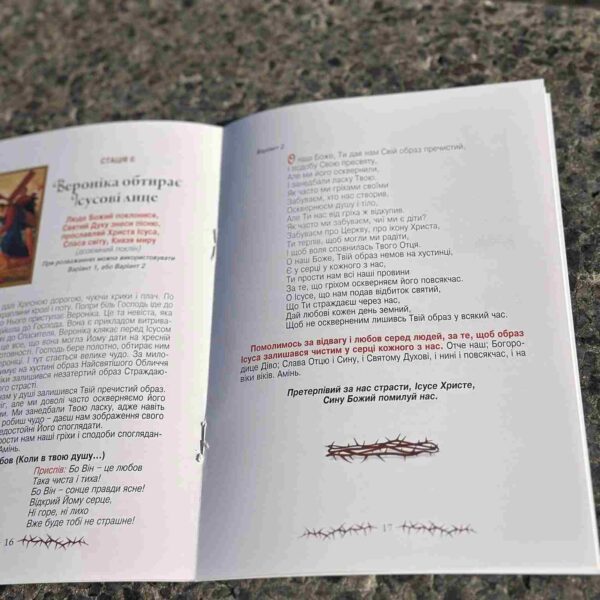 СТАЦІЯ 6
Вероніка обтирає
Ісусові лице
Люде Божий поклонися,
Святий Духу знеси пісню,
прославляй Христа Ісуса,
Спаса світу, Князя миру
(доземний поклін)
При розважанні можна використовувати
Варіант 1, або Варіант 2
далі Хресною дорогою, чуючи крики і плач. По
краплини крові і поту. Попри біль Господь іде до
Нього приступає Вероніка. Це та невіста, яка
до Господа. Вона є прикладом витрива-
до Спасителя. Вероніка клякає перед Ісусом
це все, що вона могла Йому дати на хресній
Господь бере полотно, обтирає ним
І тут стається велике чудо. За мило-
на хустині образ Найсвятішого Обличчя
залишився незатертий образ Страждаю-
страсті.
у душі залишився Твій пречистий образ.
але ми доволі часто оскверняємо його
Ми занедбали Твою ласку, адже навіть
робиш чудо – даєш нам зображення свого
Його споглядати.
нам наші гріхи і сподоби споглядан-
Амінь.
(Коли в твою душу...)
Приспів: Бо Він – це любов
Така чиста і тиха!
Бо Він – сонце правди ясне!
Відкрий Йому серце,
Ні горе, ні лихо
Вже буде тобі не страшне!
16
Варіант 2
О наш Боже, Ти дав нам Свій образ пречистий,
І подобу Свою пресвяту,
Але ми його осквернили,
І занедбали ласку Твою.
Як часто ми гріхами своїми
Забуваєм, хто нас створив,
Оскверняєм душу і тіло,
Але Ти нас від гріха ж відкупив.
Як часто ми забуваєм, чиї ми є діти?
Забуваєм про Церкву, про ікону Христа,
Ти терпів, щоб могли ми радіти,
І щоб воля сповнилась Твого Отця.
О наш Боже, Твій образ немов на хустинці,
Є у серці у кожного з нас,
Ти прости нам всі наші провини
За те, що гріхом оскверняєм його повсякчас.
О Ісусе, що нам подав відбиток святий,
Що Ти страждаєш через нас,
Дай любові кожен день земний,
Щоб не оскверненим лишивсь Твій образ у всякий час.
Помолимось за відвагу і любов серед людей, за те, щоб образ
Ісуса залишався чистим у серці кожного з нас. Отче наш; Богоро-
дице Діво; Слава Отцю і Сину, і Святому Духові, і нині і повсякчас, і на
віки віків. Амінь.
Претерпівий за нас страсти, Ісусе Христе,
Сину Божий помилуй нас.
17